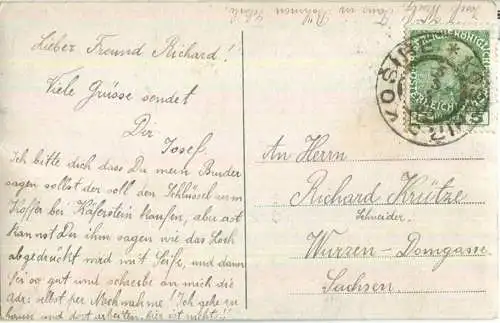 Lieber Freund Richard!
Viele Grüsse sendet
Dir
Josef.
Ich bitte dich dass Du mein Bruder
sagen sollst der soll den Schlüssel zum
Koffer bei Käferstein kaufen, aber
kannst Du ihm sagen wie das Loch
abgedrückt wird mit Seife, und dann
Sei so gut und schreibe an mich die
adr. selbst per Nachnahme! Ich gehe zu
haus und dort arbeiten, hier ist nichts!!
An Herrn
Richard Krütze
Schneider.
Wurzen - Domgasse
Sachsen